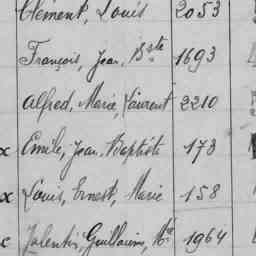 Clément, Louis 2053
François, Jean, Bste 1693
Alfred, Marie, Laurent 2210
x Emile, Jean, Baptiste 173
x Louis, Ernest, Marie 158
x Valentin, Guillaume, Mie 1964